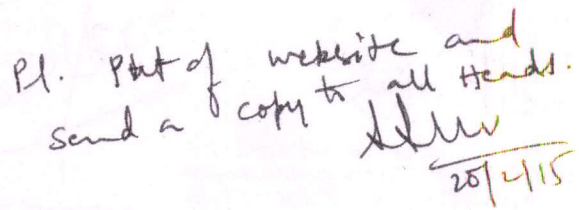 Pl. Put of website and
send a copy to all Heads.
20/2/15